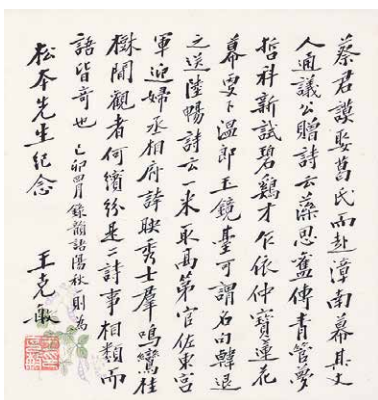 蔡君謨娶葛氏而赴漳南幕其丈
人通議公贈詩云藻思舊傳青管夢
哲科新試碧鷄才乍依仲寶蓮花
幕更下溫郎玉鏡臺可謂名句韓退
之送陸暢詩云一來取高第官佐東宮
軍迎婦丞相府誇映秀士羣鳴鸞桂
樹間觀者何繽紛是二詩事相類而
語皆奇也 己卯四月錄韻語陽秋則為
松本先生紀念 王克敏